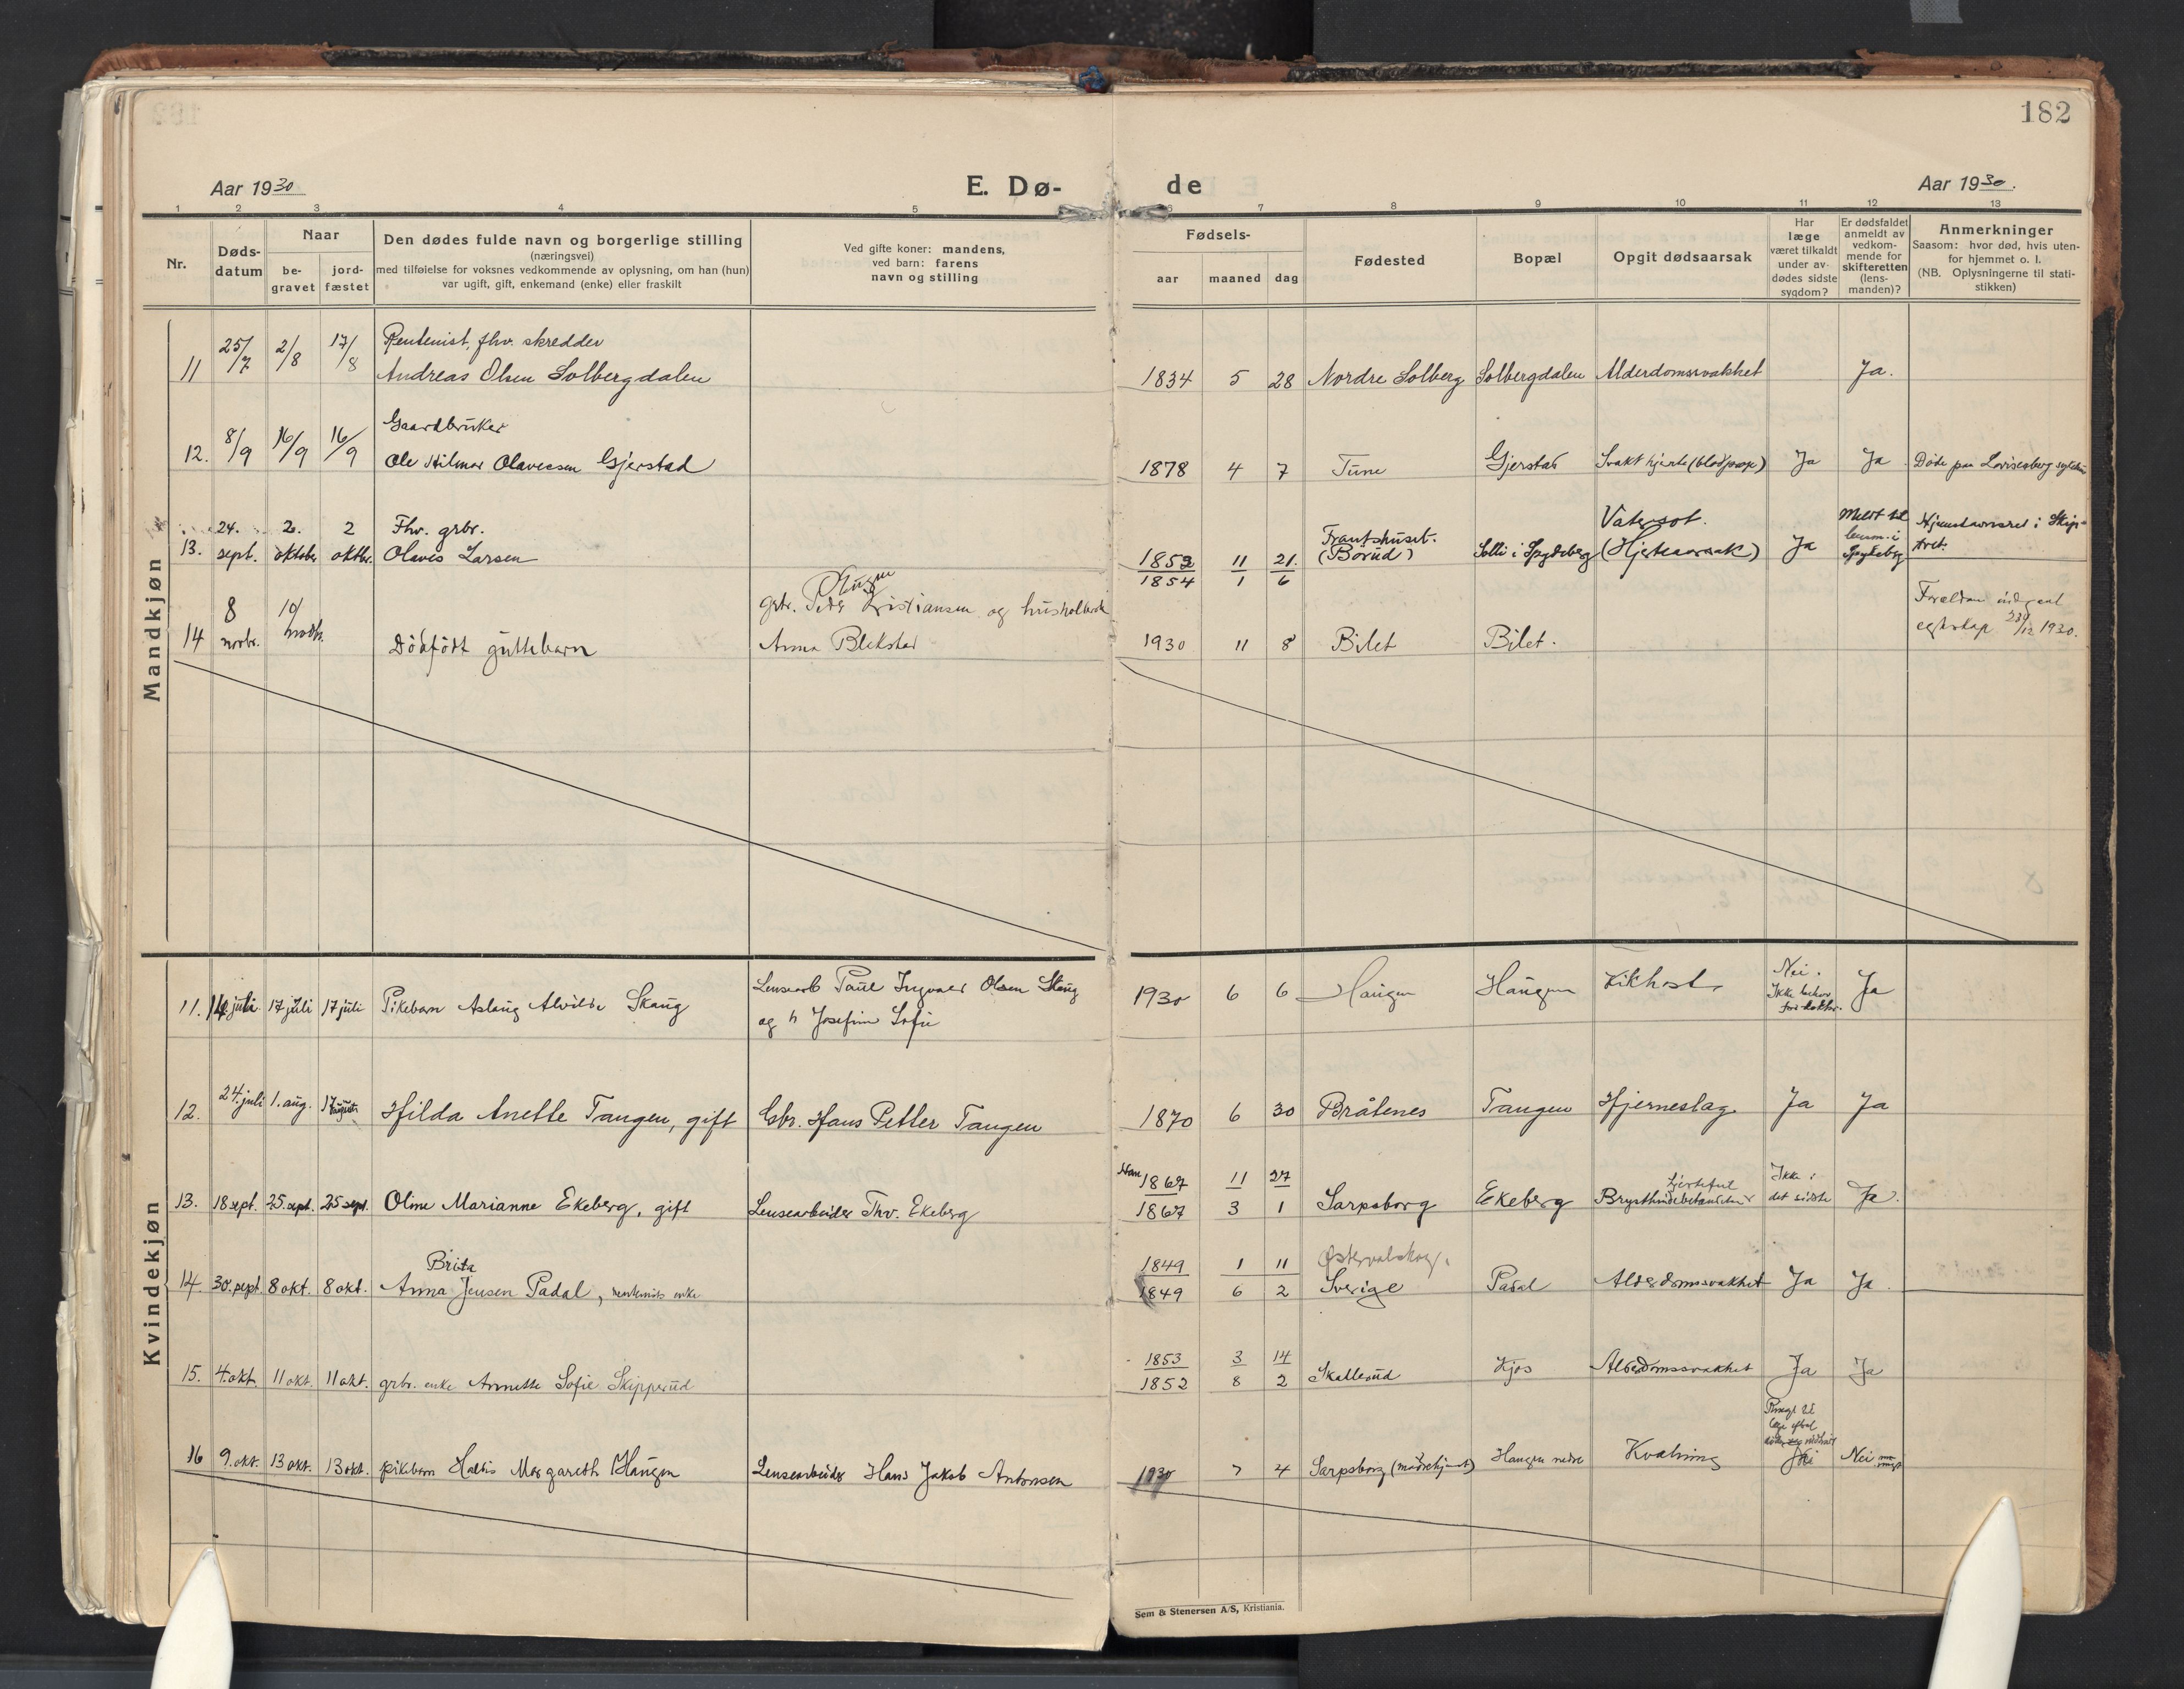 182
Aar 1930
E. Dø-
de
Aar 1930.
1 2 3 4 5 6 7 8 9 10 11 12 13
Nr.
Døds-
datum
Naar
be-
gravet
jord-
fæstet
Den dødes fulde navn og borgerlige stilling
(næringsvei)
med tilføielse for voksnes vedkommende av oplysning, om han (hun)
var ugift, gift, enkemand (enke) eller fraskilt
Ved gifte koner: mandens,
ved barn: farens
navn og stilling
Fødsels-
aar maaned dag
Fødested
Bopæl
Opgit dødsaarsak
Har
læge
været tilkaldt
under av-
dødes sidste
sygdom?
Er dødsfaldet
anmeldt av
vedkom-
mende for
skifteretten
(lens-
manden)?
Anmerkninger
Saasom: hvor død, hvis uten-
for hjemmet o. l.
(NB. Oplysningerne til stati-
stikken)
Mandkjøn
Rentenist, fhv. skredder
11 25/7 2/8 17/8 Andreas Olsen Solbergdalen 1834 5 28 Nordre Solberg Solbergdalen Alderdomssvakhet Ja.
Gaardbruker
12. 8/9 16/9 16/9 Ole Hilmar Olavessen Gjerstad 1878 4 7 Tune Gjerstad Svakt hjerte (blodprop) Ja Ja Døde paa Lovisenberg sykehus
24. 2. 2 Fhv. grbr. Frantshuset. Vatersot. Meldt til Hjemstavnsret i Skip-
13. sept. oktober oktbr. Olaves Larsen 1852 11 21. (Borud) Solli i Spydeberg (Hjerteaarsak) Ja lensm. i Spydeberg tvet.
1854 1 6
Haugen
8 10/ grbr. Peder Kristiansen og husholderske Forældre indgaat
14 novbr. novbr. Dødfødt guttebarn Anna Blekstad 1930 11 8 Bilet Bilet. egteskap 23/12 1930.
Kvindekjøn
Lensearb Paul Ingvald Olsen Skaug Nei.
11. 14 juli. 17 juli 17 juli Pikebarn Aslaug Alvilde Skaug og h Josefine Sofie 1930 6 6 Haugen Haugen Kikhost Ikke behov for doktor. Ja
12. 24. juli 1. aug. 17 august Hilda Anette Tangen, gift Gbr. Hans Petter Tangen 1870 6 30 Bråtenes Tangen Hjerneslag. Ja Ja
1867 11 27 Hjertefeil Ikke i
13. 18 sept. 25. sept. 25 sept. Oline Marianne Ekeberg, gift Lensearbeider Thv. Ekeberg 1867 3 1 Sarpsborg Ekeberg Brysthindebetændelse det sidste Ja.
Brita 1849 1 11 Østervalskog.
14. 30. sept 8 okt. 8 okt. Anna Jensen Padal, rentenists enke 1849 6 2 Sverige Padal Alderdomssvakhet Ja Ja.
1853 3 14
15. 4. okt. 11 okt. 11 okt. grbr. enke Annette Sofie Skipperud 1852 8 2 Skallerud Kjos Alderdomssvakhet Ja Ja
16 9. okt. 13 okt. 13 okt. pikebarn Haldis Margareth Haugen Lensearbeider Hans Jakob Antonsen 1930 7 4 Sarpsborg (mødrehjemt) Haugen nedre Kvælning Nei
Sem & Stenersen A/S, Kristiania.